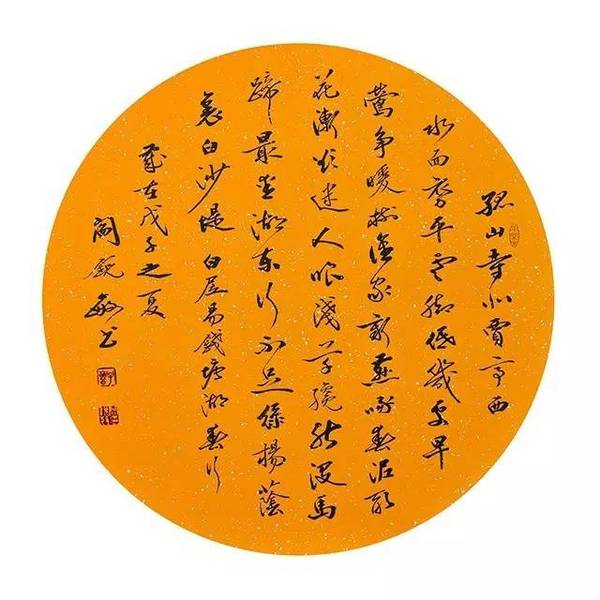 孤山寺北賈亭西
水面初平雲脚低幾處早
鶯爭暖樹誰家新燕啄春泥亂
花漸欲迷人眼淺草纔能沒馬
蹄最愛湖東行不足綠楊蔭
裏白沙堤 白居易錢塘湖春行
歲在戊子之夏
閻銳敏書